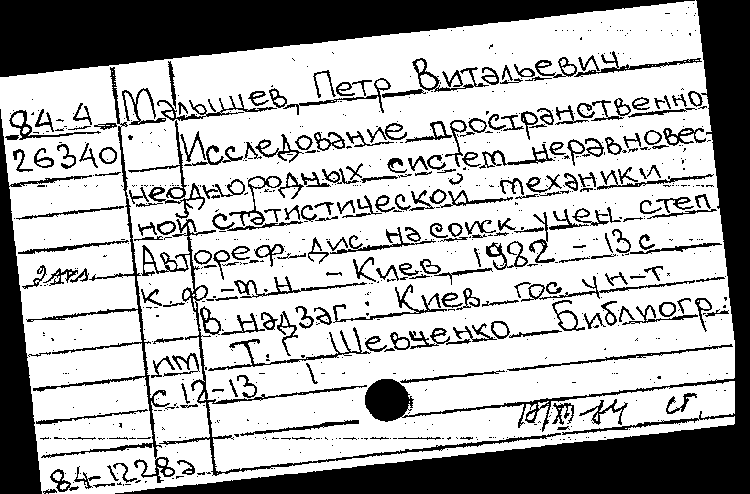 84-4 Малышев, Петр Витальевич.
26340 Исследование пространственно
неоднородных систем неравновес-
ной статистической механики.
Автореф. дис. на соиск. учен. степ.
2 экз. к. ф.-м.н. - Киев, 1982 - 13 с
В надзаг.: Киев. гос. ун-т.
им. Т. Г. Шевченко. Библиогр.:
с 12-13. 1
84 ст.
84-12282